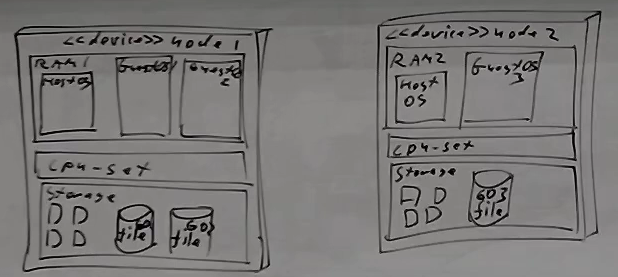 <<device>> node 1
RAM1
HostOS
GuestOS1
GuestOS
2
cpu-set
Storage
D D
D D
file
GO3
file
<<device>> node 2
RAM2
Host
OS
GuestOS
3
cpu-set
Storage
D D
D D
GO3
file